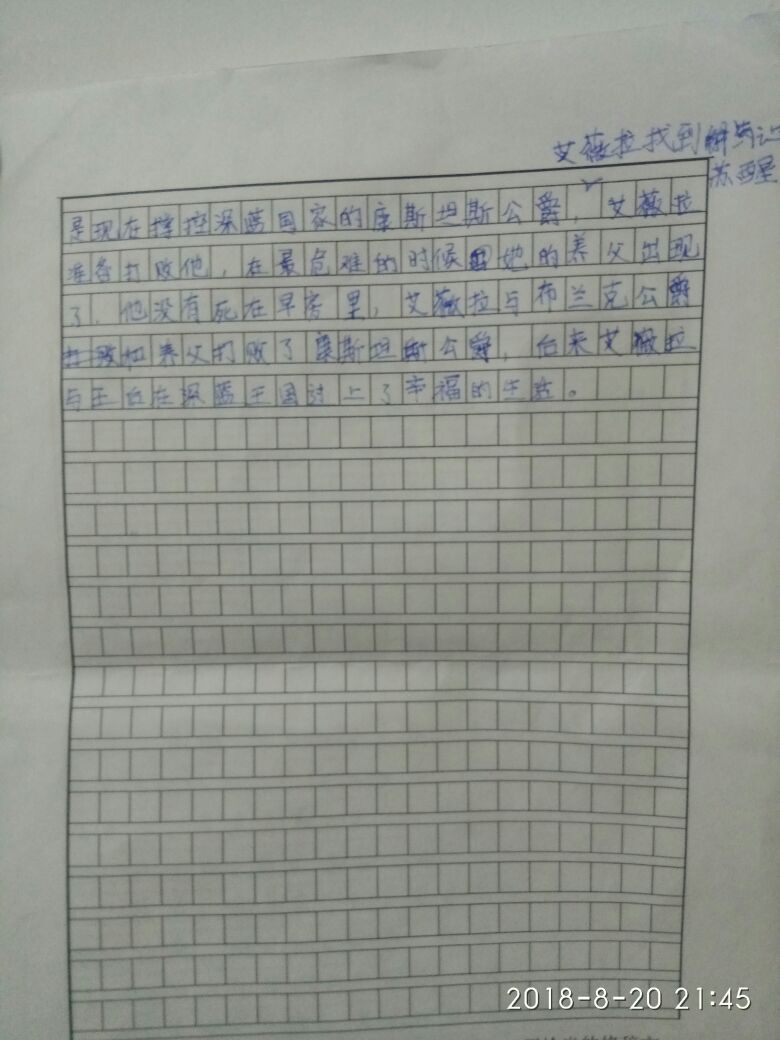 艾薇拉找到解药让
苏醒
是现在掌控深蓝国家的康斯坦斯公爵，艾薇拉
准备打败他，在最危难的时候她的养父出现
了，他没有死在早房里，艾薇拉与布兰克公爵
和养父打败了康斯坦斯公爵，后来艾薇拉
与王后在深蓝王国过上了幸福的生活。
2018-8-20 21:45